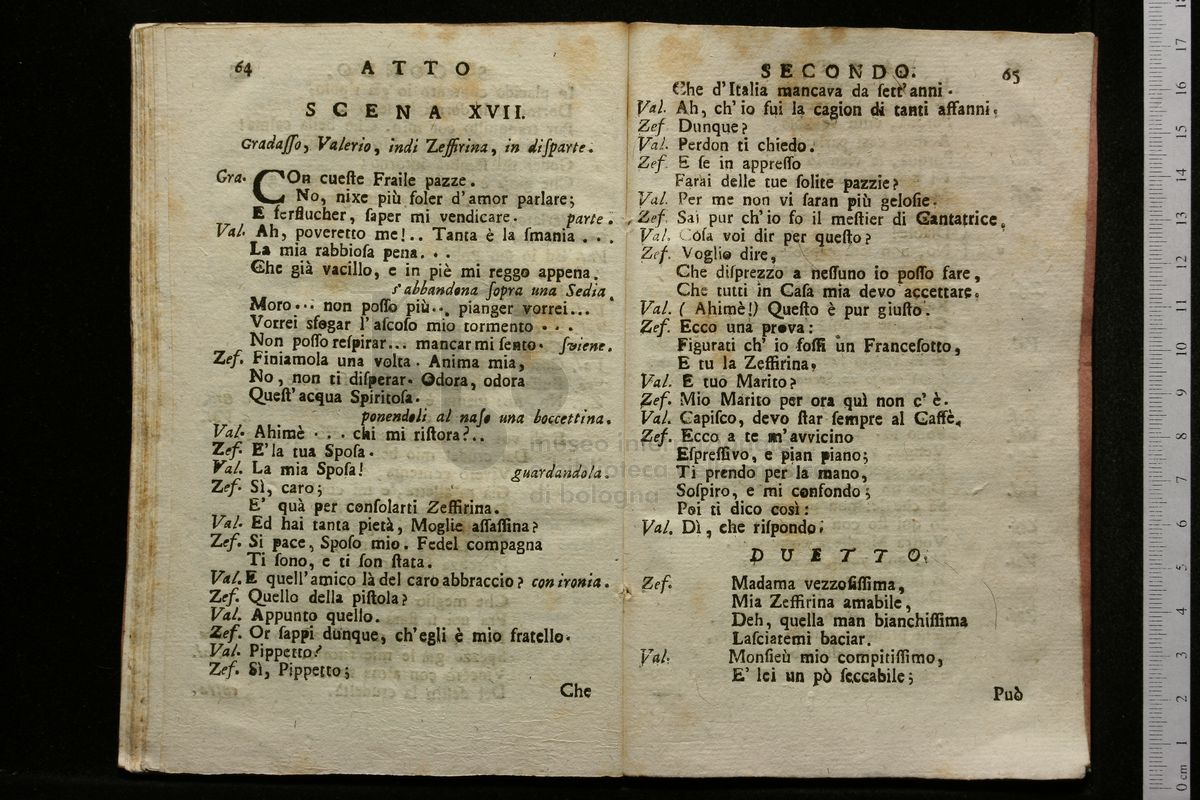 64 ATTO
SCENA XVII.
Gradaſſo, Valerio, indi Zeffirina, in diſparte.
Gra. COn cueſte Fraile pazze.
No, nixe più ſoler d'amor parlare;
E ferflucher, ſaper mi vendicare. parte.
Val. Ah, poveretto me!.. Tanta è la ſmania...
La mia rabbioſa pena...
Che già vacillo, e in piè mi reggo appena.
s'abbandona ſopra una Sedia.
Moro... non poſſo più... pianger vorrei...
Vorrei sfogar l'aſcoſo mio tormento...
Non poſſo reſpirar... mancar mi ſento. ſviene.
Zef. Finiamola una volta. Anima mia,
No, non ti diſperar. Odora, odora
Queſt'acqua Spiritoſa.
ponendoli al naſo una boccettina.
Val. Ahimè... chi mi riſtora?..
Zef. E' la tua Spoſa.
Val. La mia Spoſa! guardandola.
Zef. Sì, caro;
E' quà per conſolarti Zeffirina.
Val. Ed hai tanta pietà, Moglie aſſaſſina?
Zef. Si pace, Spoſo mio. Fedel compagna
Ti ſono, e ti ſon ſtata.
Val. E quell'amico là del caro abbraccio? con ironia.
Zef. Quello della piſtola?
Val. Appunto quello.
Zef. Or ſappi dunque, ch'egli è mio fratello.
Val. Pippetto?
Zef. Sì, Pippetto;
Che
SECONDO. 65
Che d'Italia mancava da ſett'anni.
Val. Ah, ch'io fui la cagion di tanti affanni.
Zef. Dunque?
Val. Perdon ti chiedo.
Zef. E ſe in appreſſo
Farai delle tue ſolite pazzie?
Val. Per me non vi ſaran più geloſie.
Zef. Sai pur ch'io fo il meſtier di Cantatrice.
Val. Coſa voi dir per queſto?
Zef. Voglio dire,
Che diſprezzo a neſſuno io poſſo fare,
Che tutti in Caſa mia devo accettare.
Val. (Ahimè!) Queſto è pur giuſto.
Zef. Ecco una prova:
Figurati ch'io foſſi un Franceſotto,
E tu la Zeffirina.
Val. E tuo Marito?
Zef. Mio Marito per ora quì non c'è.
Val. Capiſco, devo ſtar ſempre al Caffè.
Zef. Ecco a te m'avvicino
Eſpreſſivo, e pian piano;
Ti prendo per la mano,
Soſpiro, e mi confondo;
Poi ti dico così:
Val. Dì, che riſpondo.
DUETTO.
Zef. Madama vezzoſiſſima,
Mia Zeffirina amabile,
Deh, quella man bianchiſſima
Laſciatemi baciar.
Val. Monſieù mio compitiſſimo,
E' lei un pò ſeccabile;
Può